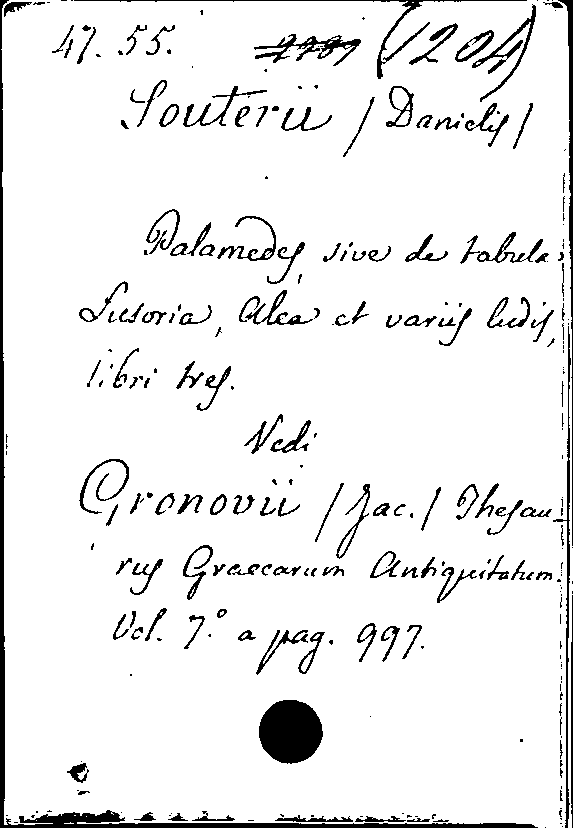 47. 55. (1204)
Souterii /Danielis/
Palamedes, sive de tabula
Lusoria, Alea et variis ludis,
libri tres.
Vedi
Gronovii /Jac./ Thesau-
rus Graecarum Antiquitatum.
Vol. 7.º a pag. 997.